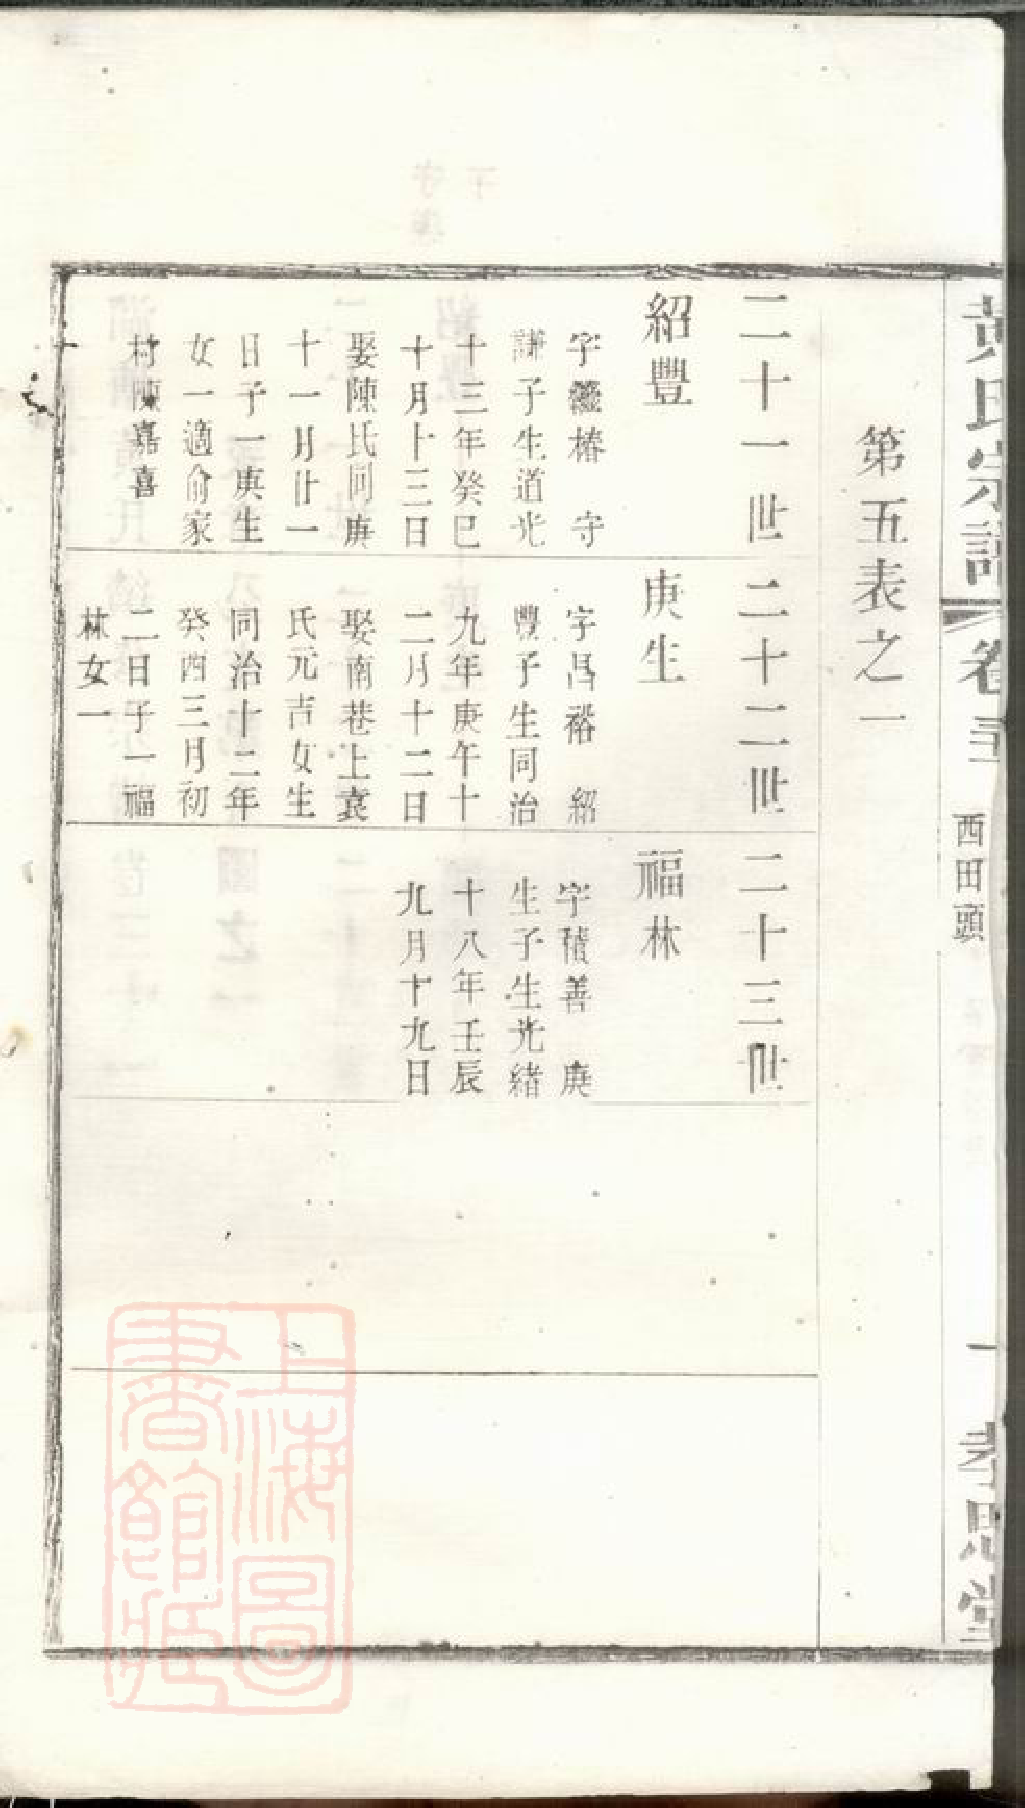 黃氏宗譜
卷
西田頭
一
孝思堂
第五表之一
二十一世
紹豐
字 椿 守
謙子生道光
十三年癸巳
十月十三日
娶陳氏同庚
十一月廿一
日子一庚生
女一適俞家
村陳嘉喜
二十二世
庚生
字昌裕 紹
豐子生同治
九年庚午十
二月十二日
娶南巷上袁
氏元吉女生
同治十二年
癸酉三月初
二日子一福
林女一
二十三世
福林
字積善 庚
生子生光緒
十八年壬辰
九月十九日
上海圖
書館藏